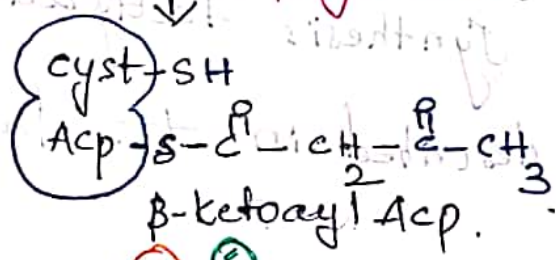 cyst-SH
O O
Acp-S-C-CH2-C-CH3
β-ketoayl Acp.